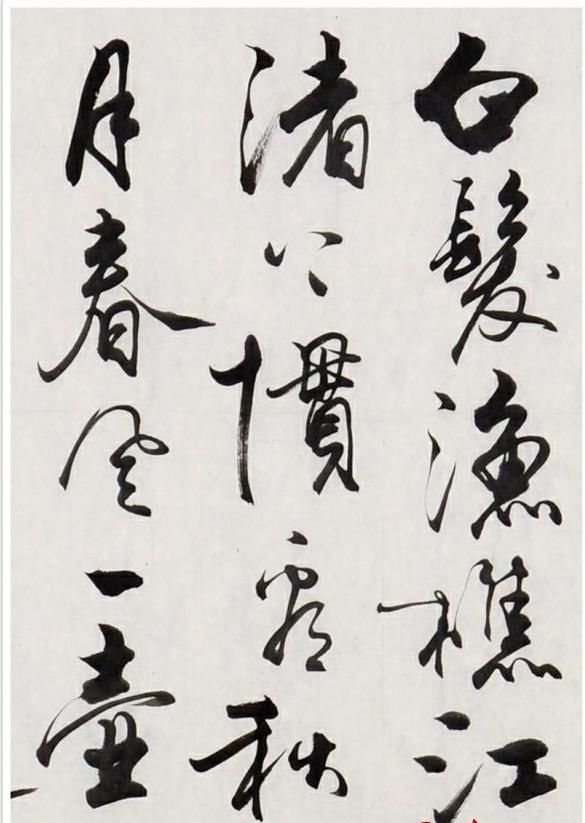 白髮漁樵江
渚上慣看秋
月春風一壺